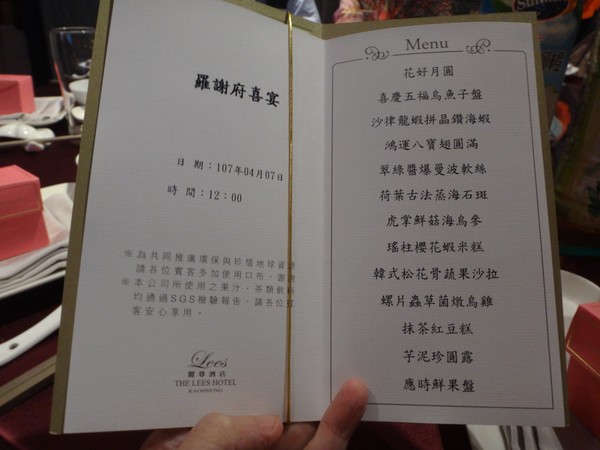 羅謝府喜宴
日 期：107年04月07日
時 間：12:00
※為共同推廣環保與珍惜地球資源
請各位賓客多加使用口布，謝謝
※本公司所使用之果汁、茶類飲
均通過SGS檢驗報告，請各位
客安心享用。
Lees
麗尊酒店
THE LEES HOTEL
KAOHSIUNG
Menu
花好月圓
喜慶五福烏魚子盤
沙律龍蝦拼晶鑽海蝦
鴻運八寶翅圓滿
翠綠醬爆曼波軟絲
荷葉古法蒸海石斑
虎掌鮮菇海烏參
瑤柱櫻花蝦米糕
韓式松花骨蔬果沙拉
螺片蟲草菌燉烏雞
抹茶紅豆糕
芋泥珍圓露
應時鮮果盤